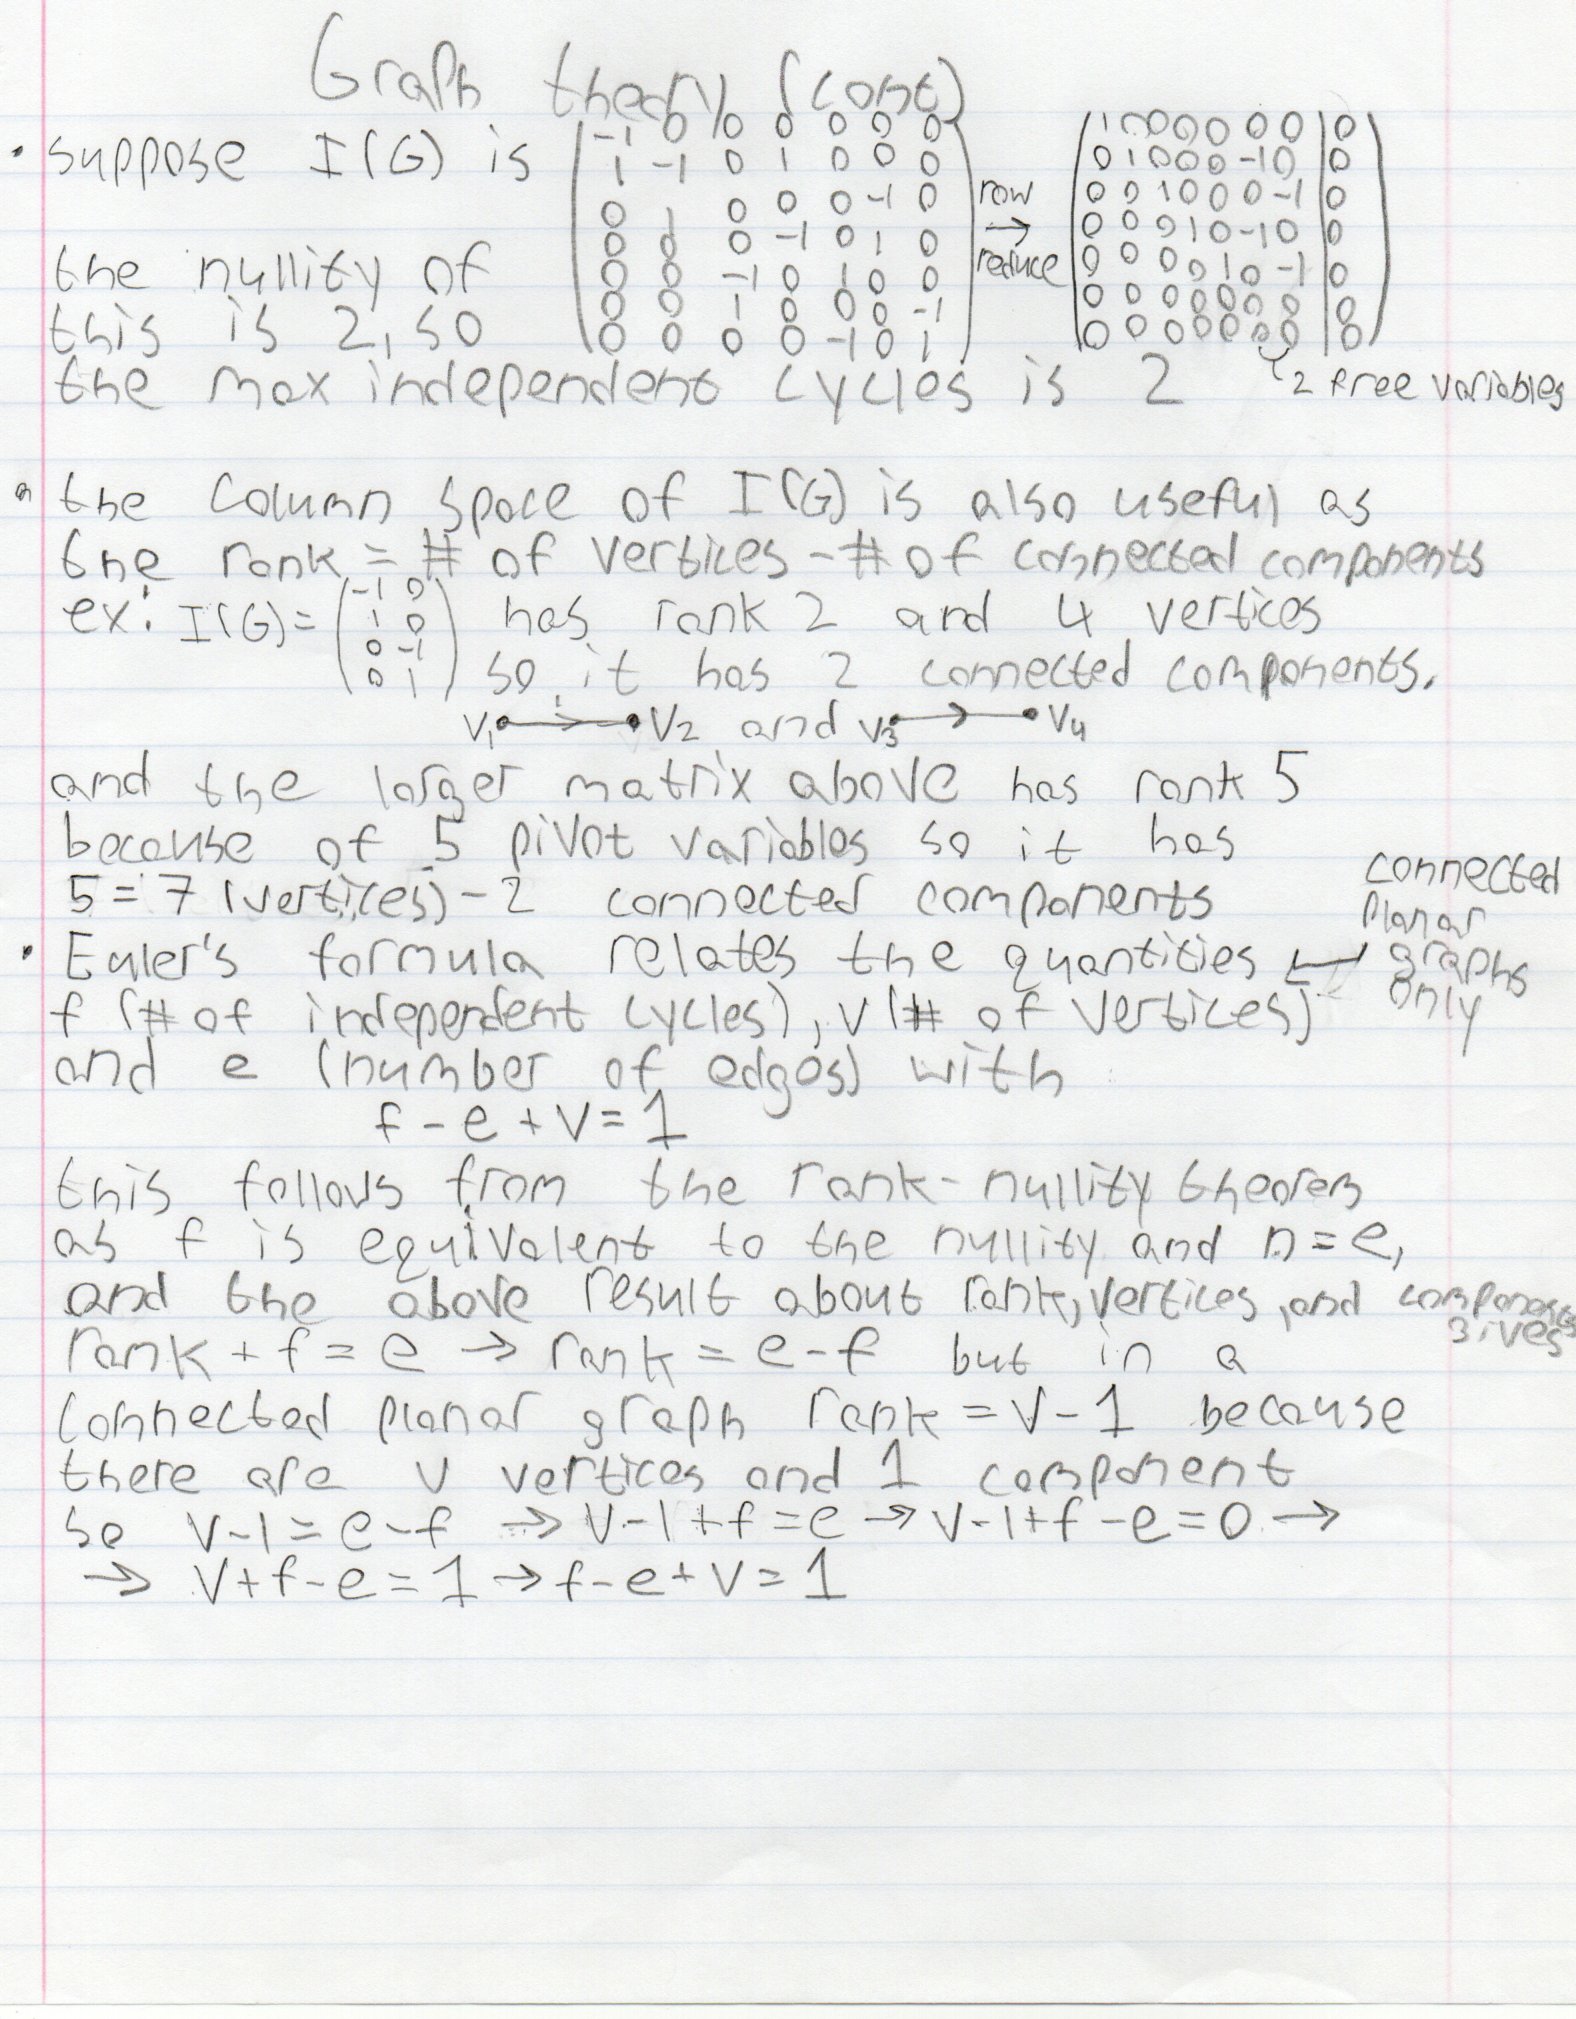 Graph theory (cont)
• suppose I(G) is
the nullity of
this is 2, so
-1 0 0 0 0 0 0
1 -1 0 1 0 0 0
0 1 0 0 0 -1 0
0 0 0 -1 0 1 0
0 0 -1 0 1 0 0
0 0 1 0 0 0 -1
0 0 0 0 -1 0 1
row
→
reduce
1 0 0 0 0 0 0 | 0
0 1 0 0 0 -1 0 | 0
0 0 1 0 0 0 -1 | 0
0 0 0 1 0 -1 0 | 0
0 0 0 0 1 0 -1 | 0
0 0 0 0 0 0 0 | 0
0 0 0 0 0 0 0 | 0
the max independent cycles is 2
2 free variables
• the column space of I(G) is also useful as
the rank = # of vertices - # of connected components
ex: I(G) =
-1 0
1 0
0 -1
0 1
has rank 2 and 4 vertices
so it has 2 connected components.
V1 V2 and V3 V4
and the larger matrix above has rank 5
because of 5 pivot variables so it has
5 = 7 (vertices) - 2 connected components
• Euler's formula relates the quantities
connected
planar
graphs
only
f (# of independent cycles), v (# of vertices)
and e (number of edges) with
f - e + v = 1
this follows from the rank-nullity theorem
as f is equivalent to the nullity and n = e,
and the above result about rank, vertices, and components
gives
rank + f = e → rank = e - f but in a
connected planar graph rank = v - 1 because
there are v vertices and 1 component
so v - 1 = e - f → v - 1 + f = e → v - 1 + f - e = 0 →
→ v + f - e = 1 → f - e + v = 1